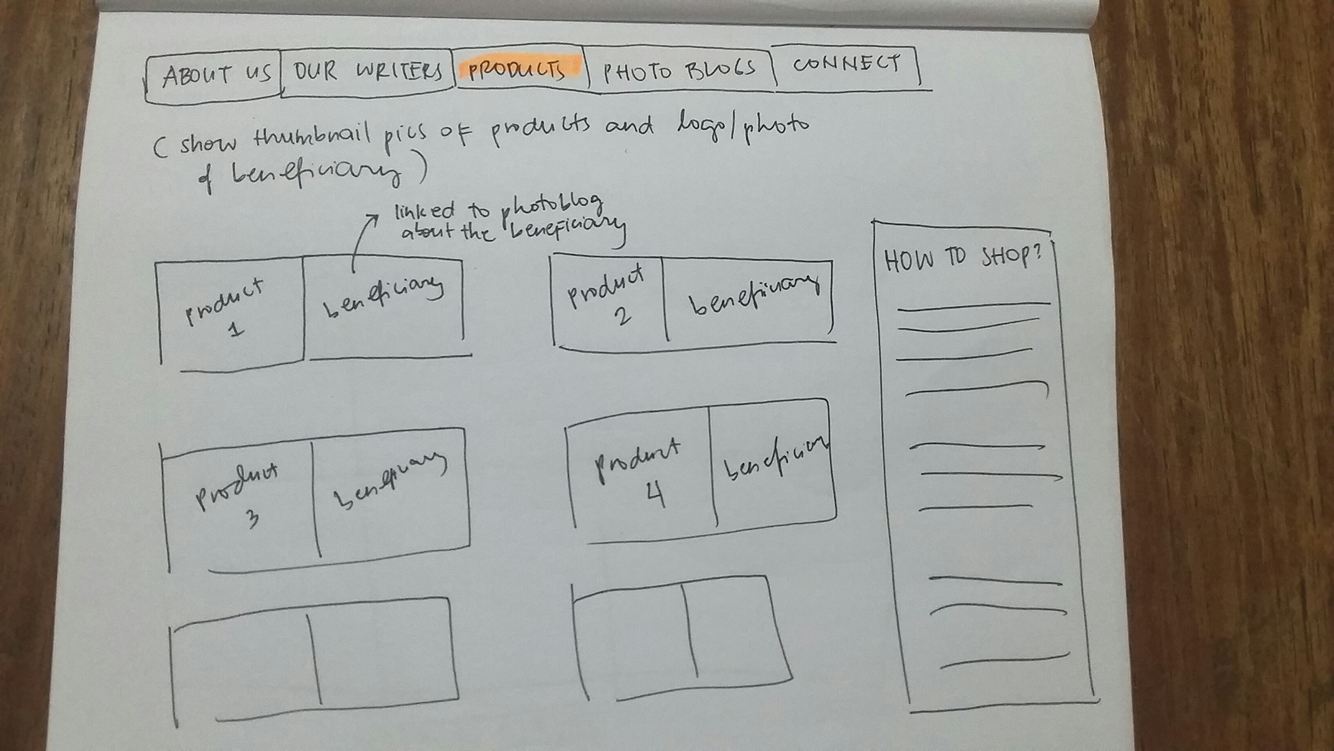 ABOUT US OUR WRITERS PRODUCTS PHOTO BLOGS CONNECT
(show thumbnail pics of products and logo/photo
of beneficiary)
linked to photoblog
about the beneficiary
product
1
beneficiary
product
2
beneficiary
HOW TO SHOP?
product
3
beneficiary
product
4
beneficiary